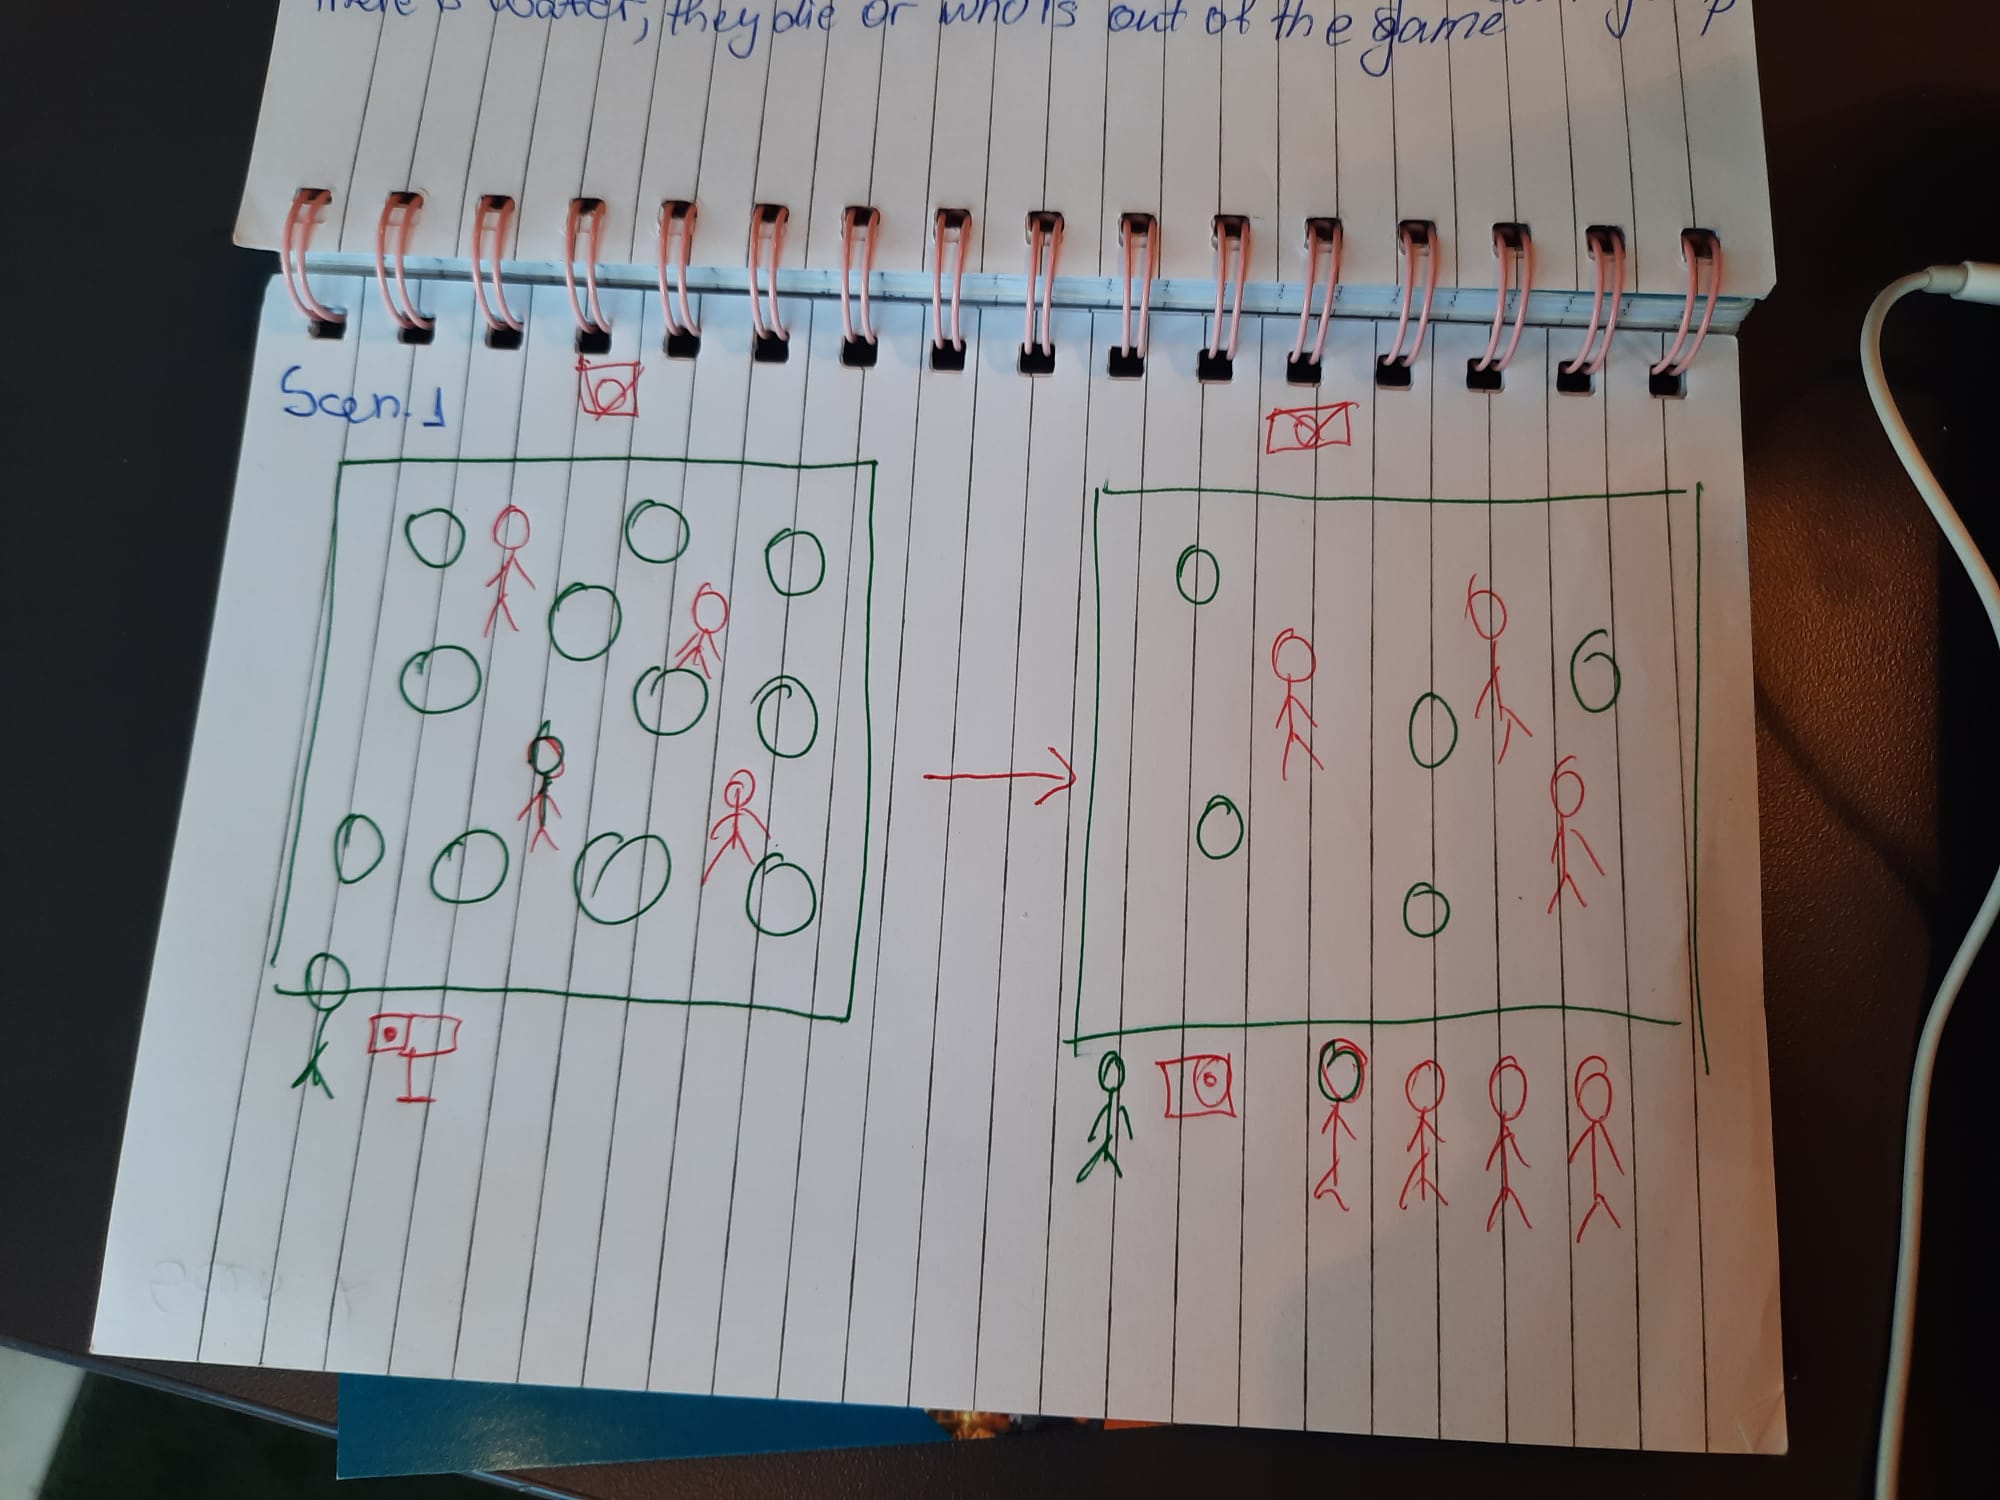 there is water, they die or who is out of the game
Scen. 1